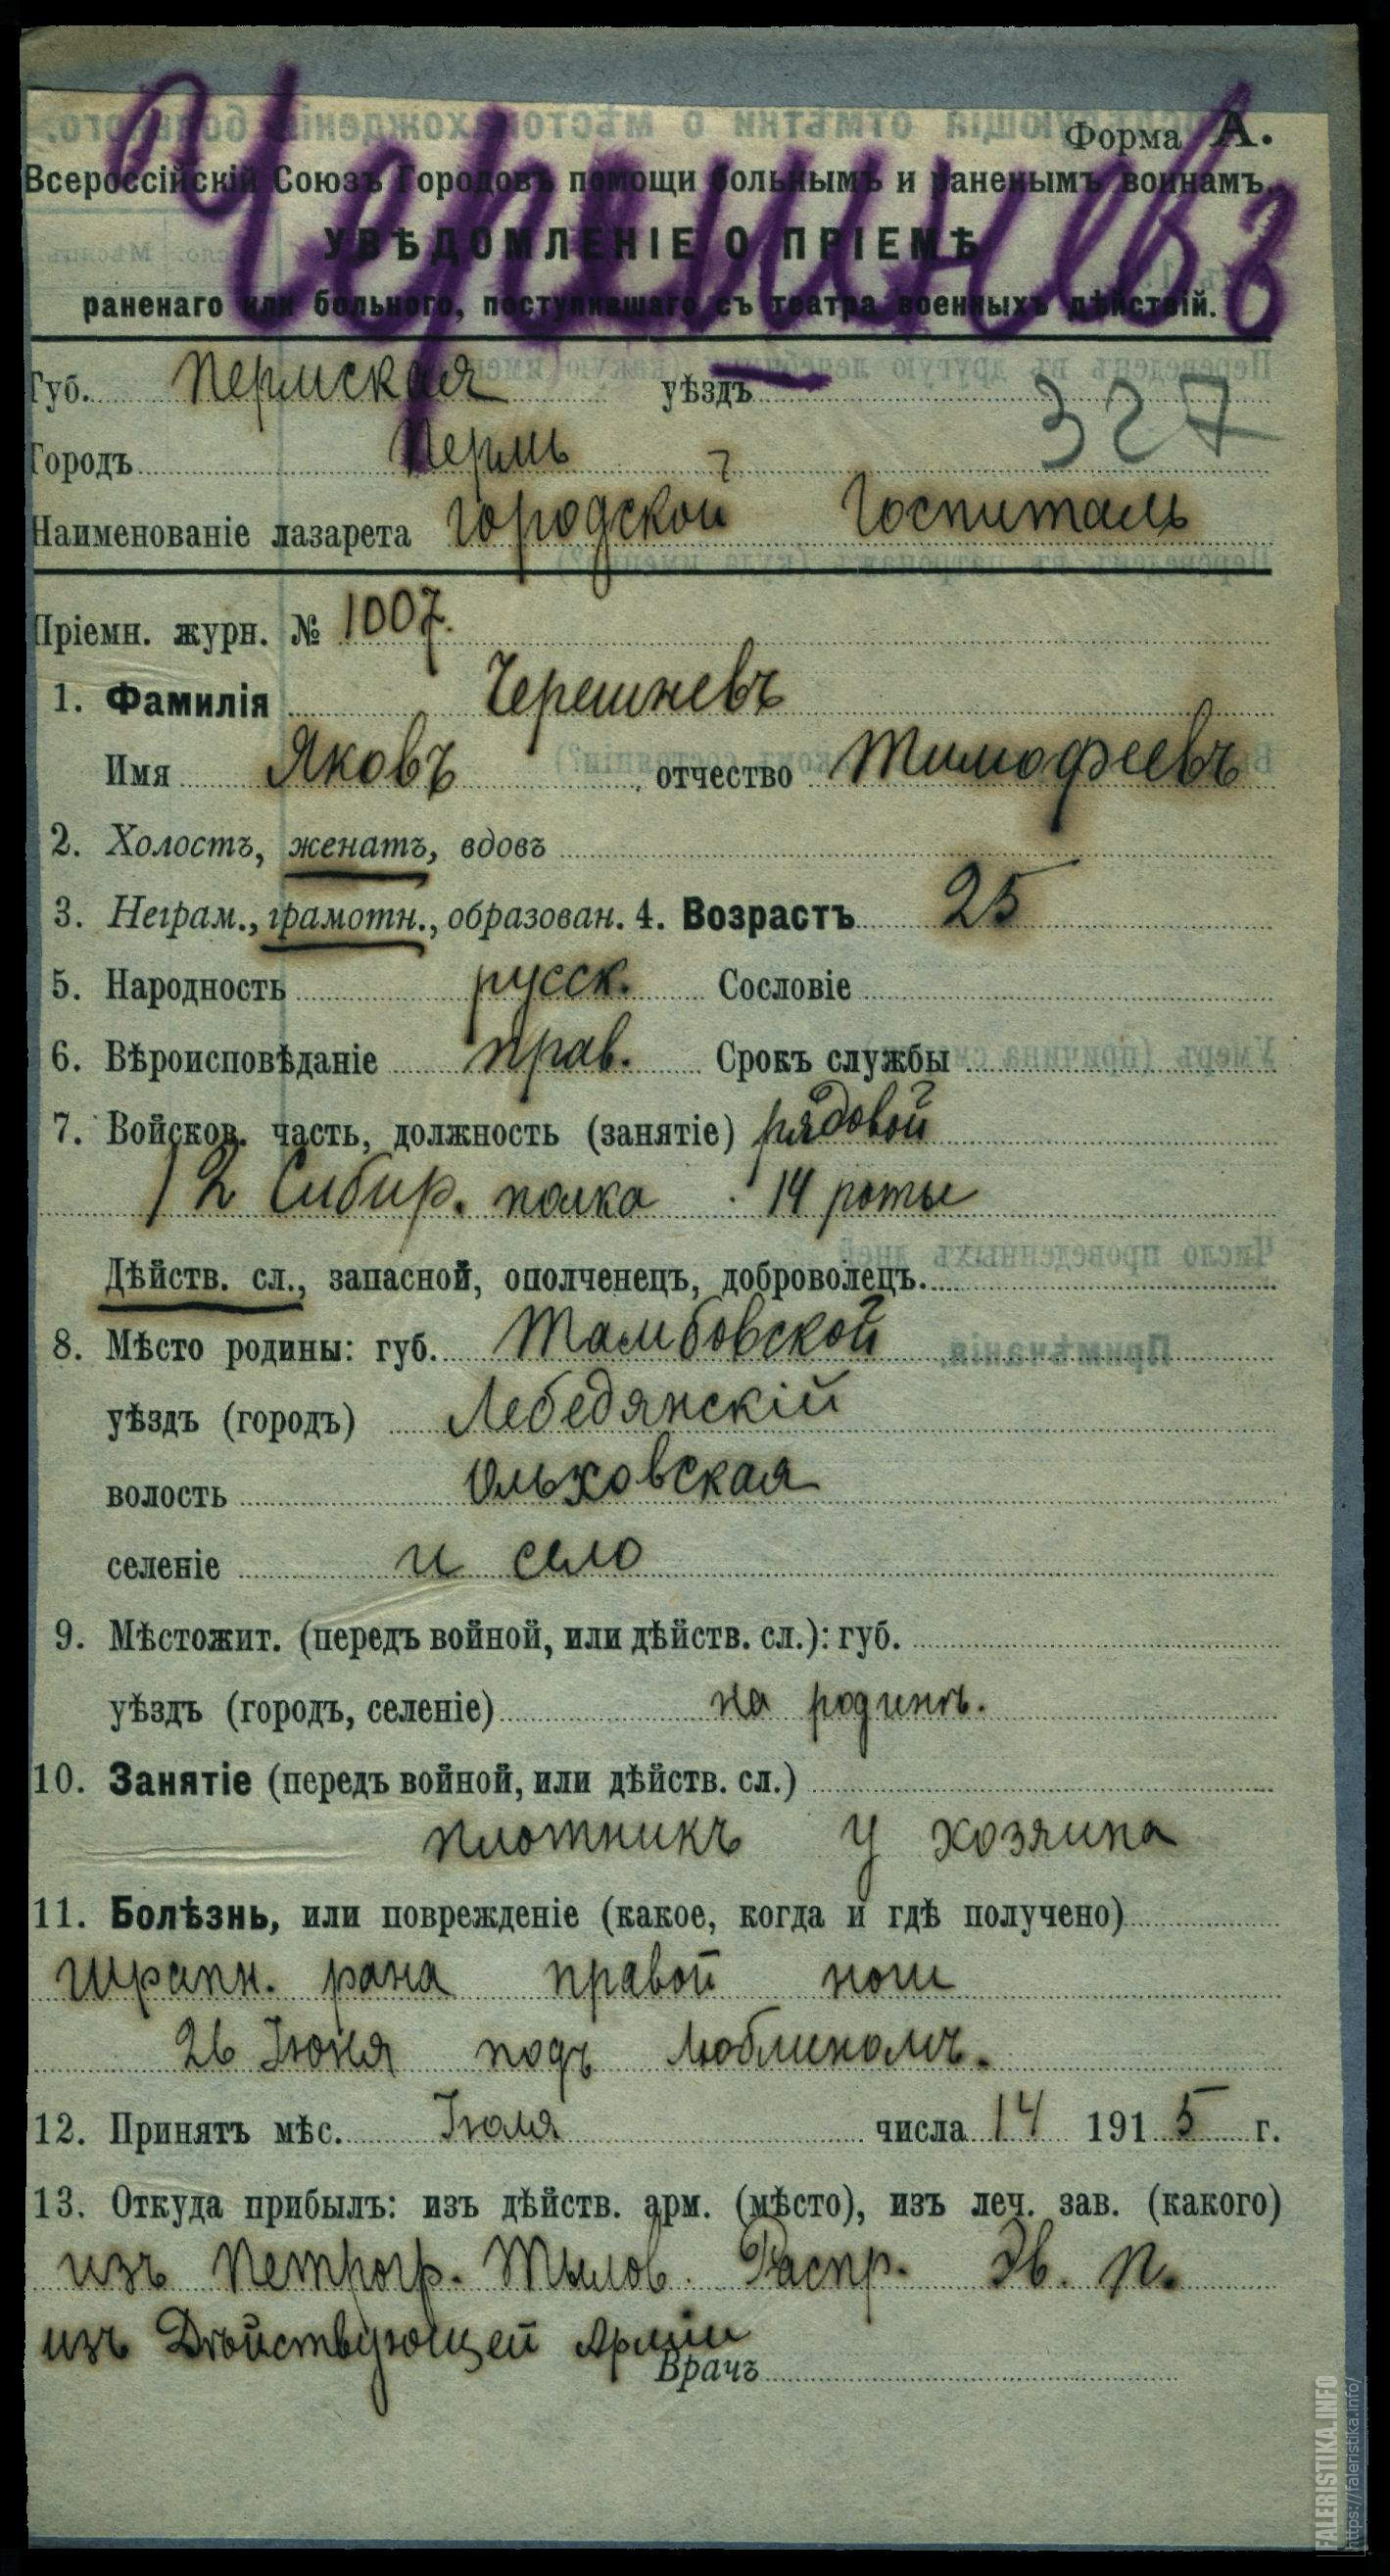 Черешневъ
Форма А.
Всероссійскій Союзъ Городовъ помощи больнымъ и раненымъ воинамъ.
УВѢДОМЛЕНІЕ О ПРІЕМѢ
раненаго или больного, поступившаго съ театра военныхъ дѣйствій.
Губ. Пермская уѣздъ
327
Городъ Пермь
Наименованіе лазарета Городской Госпиталь
Пріемн. журн. № 1007.
1. Фамилія Черешневъ
Имя Яковъ отчество Тимофеевъ
2. Холостъ, женатъ, вдовъ
3. Неграм., грамотн., образован. 4. Возрастъ 25
5. Народность русск. Сословіе
6. Вѣроисповѣданіе прав. Срокъ службы
7. Войсков. часть, должность (занятіе) рядовой
12 Сибир. полка 14 роты
Дѣйств. сл., запасной, ополченецъ, доброволецъ.
8. Мѣсто родины: губ. Тамбовской
уѣздъ (городъ) Лебедянскій
волость Ольховская
селеніе и село
9. Мѣстожит. (передъ войной, или дѣйств. сл.): губ.
уѣздъ (городъ, селеніе) на родинѣ.
10. Занятіе (передъ войной, или дѣйств. сл.)
плотникъ у хозяина
11. Болѣзнь, или поврежденіе (какое, когда и гдѣ получено)
Шрапн. рана правой ноги
26 Іюня подъ Люблиномъ.
12. Принятъ мѣс. Іюля числа 14 1915 г.
13. Откуда прибылъ: изъ дѣйств. арм. (мѣсто), изъ леч. зав. (какого)
изъ Петрогр. Тылов. Распр. Эв. П.
изъ Дѣйствующей Арміи
Врачъ
FALERISTIKA.INFO
https://faleristika.info/